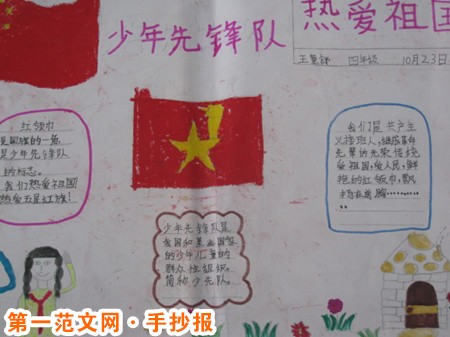 少年先锋队
热爱祖国
王 四年级 10月23日
红领巾
是国旗的一角,
是少年先锋队
的标志。
我们热爱祖国
热爱五星红旗!
我们是共产主
义接班人,继承革命
先辈的光荣传统
爱祖国,爱人民,鲜
艳的红领巾,飘
扬在前胸……
少年先锋队是
我国和某些国家
的少年儿童的
群众性组织。
简称少先队。
第一范文网·手抄报